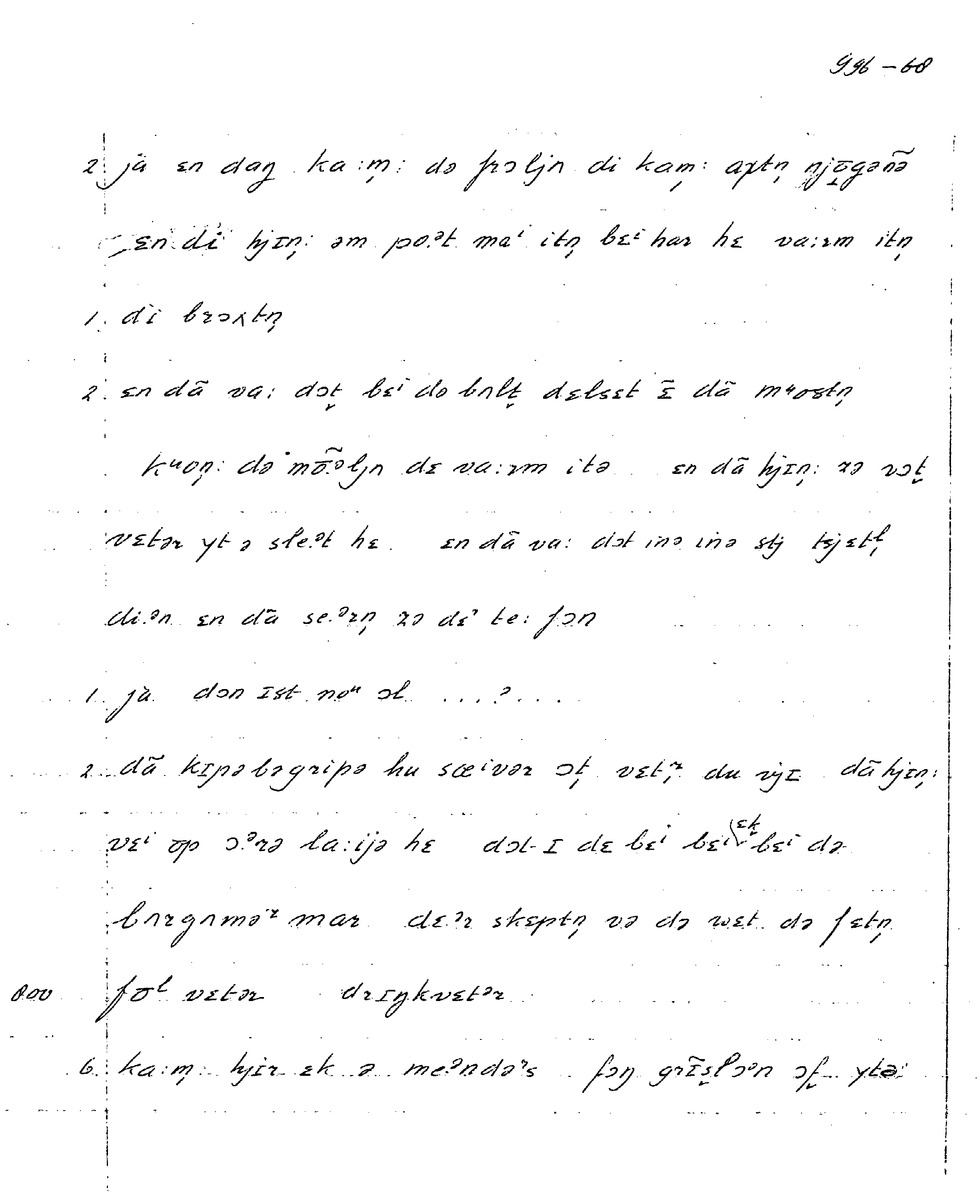 996 – 68
2. ja ɛn daŋ ka:m̩: də frɔljn di kam̩: aχtn̩ njʊ̃gənə̃
ɛn di hjɪn̩: əm po.ət maⁱ itn̩ bɛⁱ har hɛ va:rm itn̩
1. di brɔχtn̩
2. ɛn dã va: dɔt̬ bɛⁱ də bʌlt̬ dɛlsɛt ɛ̃ dã mᵘostn̩
kᵘon̩: də mõ.əljn dɛ va:rm itə ɛn dã hjɪn̩: zə vɔt̬
vɛtər yt ə sle.ət hɛ ɛn dã va: dɔt inə inə stj tsjɛtl̩
di.ən ɛn dã se.ərn̩ zə dɛⁱ te: fɔn
1. ja dɔn ɪst noᵘ ɔl ...?....
2. dã kɪpəbəgripə hu sœⁱvər ɔt̬ vɛtᵊr du vjɪ dã hjɪn̩:
vɛⁱ ʊp ɔ.ərə la:ijə hɛ dɔt ɪ dɛ bɛⁱ bɛⁱ ɛk bɛⁱ də
bʌrgʌməʳ mar dɛ ər skɛptn̩ və də wɛt də fɛtn̩
800 fʊˡ vɛtər drɪŋkvɛtər
6. ka:m̩: hjir ɛk ə meəndəʳs fɔŋ grĩslɔən ɔf̬ ytə: